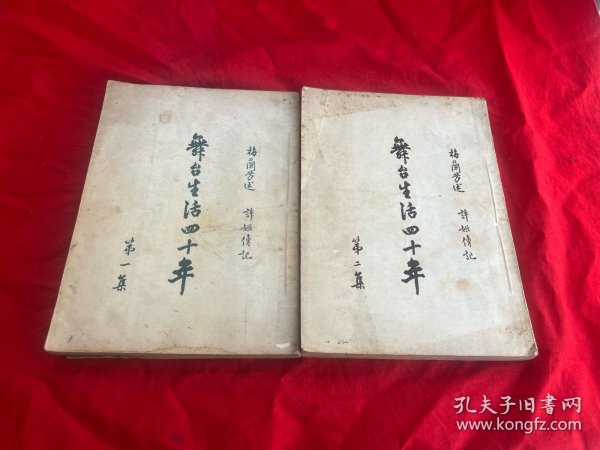 梅蘭芳述 許姬傳記
舞台生活四十年
第一集
梅蘭芳述 許姬傳記
舞台生活四十年
第二集
孔夫子旧書网
www.kongfz.com